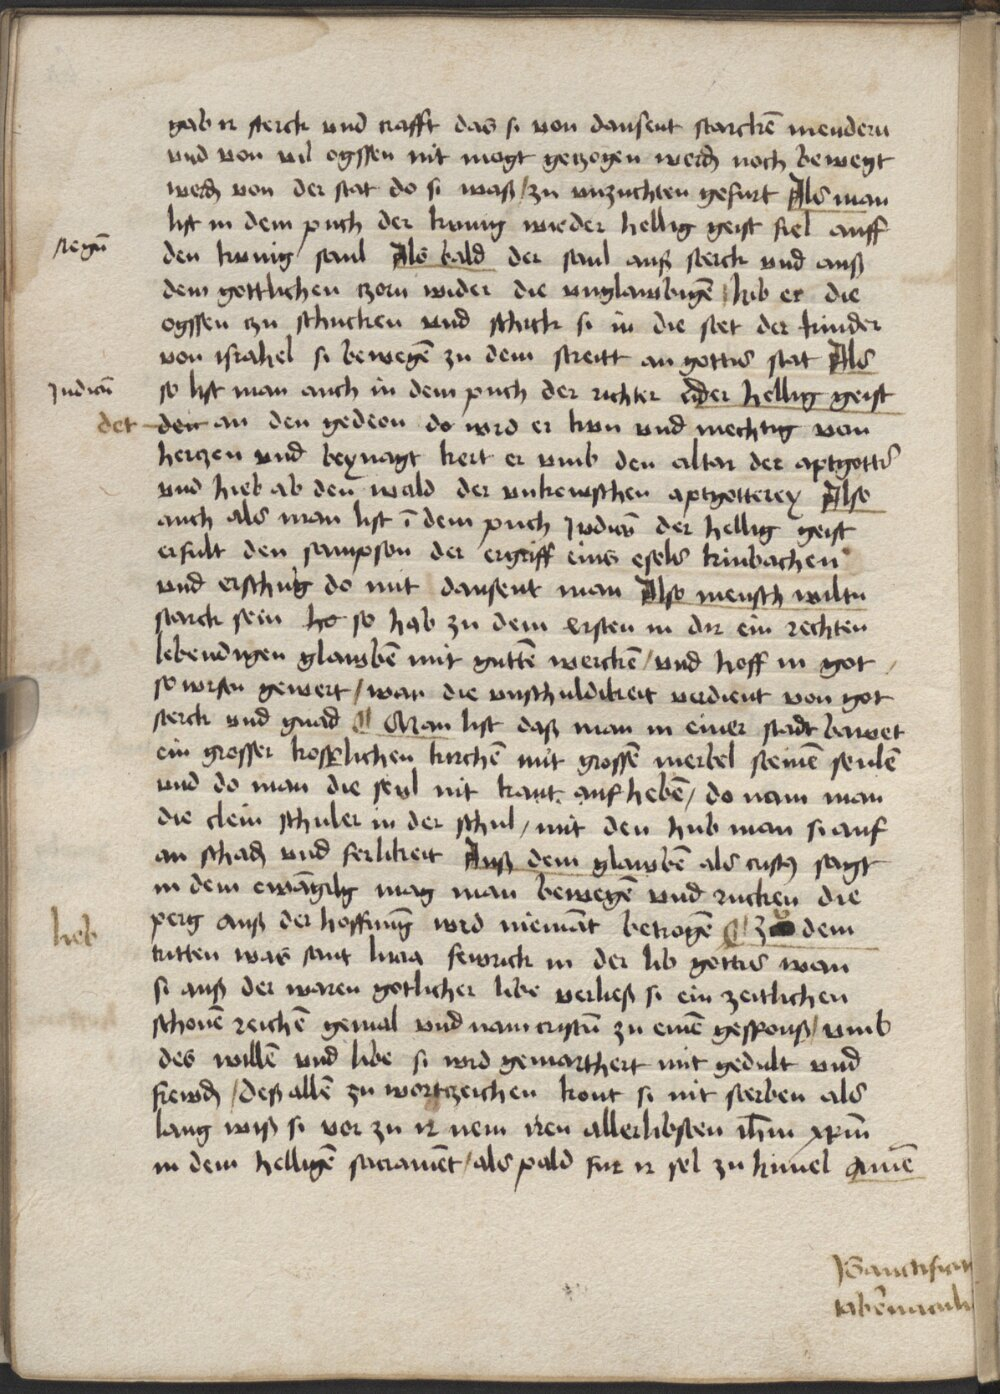 gab ir sterck und crafft das si von dausent starckē mendern
und von vil ogssen nit mogt getzogen werdē noch bewegt
werdē von der stat do si waß / zu unzuchten gefurt Als man
list in dem puch der kunig wieder hellig geist fiel auff
Regū
den kunig saul Als bald der saul auß sterck und auß
dem gottlichen tzorn wider die unglawbigē hib er die
ogssen tzu stucken und schickt si in die stet der kinder
von israhel si bewegē zu dem streitt an gottis stat Als
Judicū
so list man auch in dem puch der richter der hellig geist
det den an den gedeon do wrd er kun und mechtig von
hertzen und beynagt kert er umb den altar der aptgotter
und hieb ab den wald der unkewschen aptgotterey Also
auch als man list ī dem puch Judicū der hellig geist
erfult den sampson der ergriff eins esels kinbachen
und erschug do mit dausent man Also mensch wiltu
starck sein so hab zu dem ersten in dir ein rechten
lebendigen glawbē mit guttē werckē / und hoff in got /
so wirstu gewert / wan die unschuldikeit verdient von got
sterck und gnad ¶ Man list daß man in einer stadt bawet
ein grosser kostlichen kirchē mit grossē merbel steinē seulē
und do man die seul nit kant aufhebē / do nam man
die clein schuler in der schul / mit den hub man si auf
an schadē und ferlikeit Auß dem glawbē als cristꝰ sagt
in dem ewāgilg mag man bewegē und rucken die
lieb
perg auß der hoffnūg wrd niemāt betrogē ¶ Zu dem
tritten was sant lucia fewrick in der lib gottis wan
si auß der waren gotlicher libe verließ si ein zeitlichen
schonē reichē gemal und nam cristū zu einē gespouß / umb
des willē und libe si wrd gemarthert mit gedult und
frewdē / deß allē zu wortzeichen kont si nit sterben als
lang wiß si vor zu ir nem iren allerlibsten ihm xpm
in dem helligē sacramēt / als pald fur ir sel zu himel Amē
Sanctifica
tabernaculū